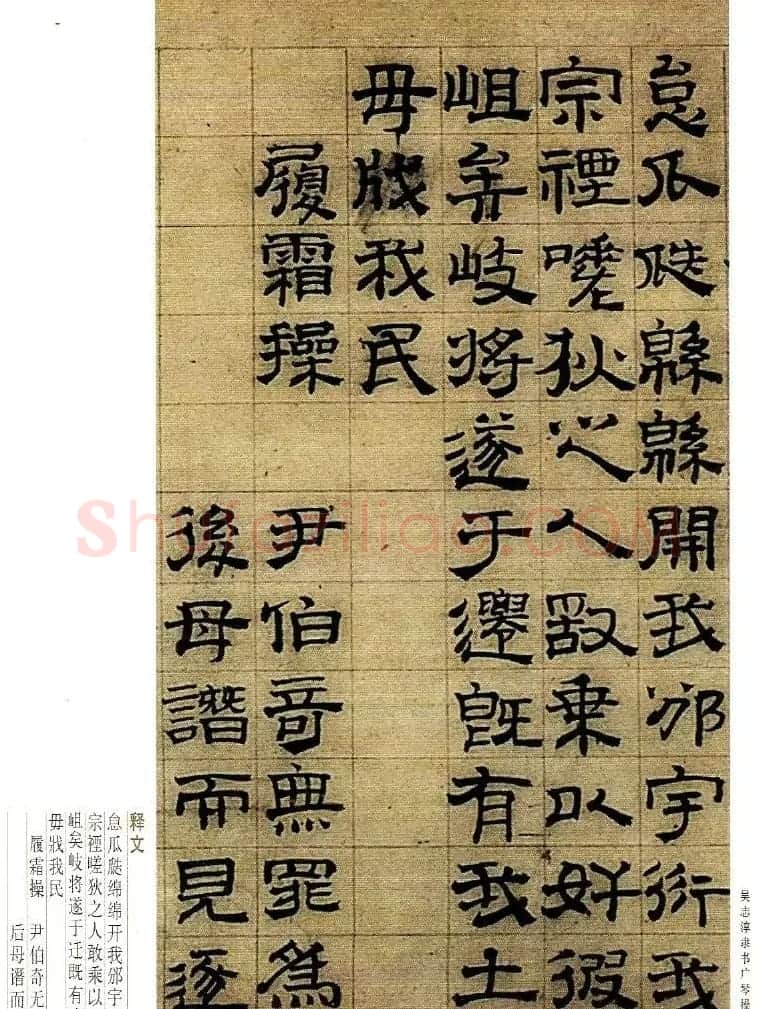 吴志淳隶书广琴操
怠瓜瓞緜緜開我邠宇衍我
宗禋嗟狄之人敢乗以奸假
岨矣岐將遂于遷旣有我土
毋戕我民
履霜操 尹伯奇無罪爲
後母譖而見逐
释文
怠瓜瓞绵绵开我邠宇
宗禋嗟狄之人敢乘以
岨矣岐将遂于迁既有
毋戕我民
履霜操 尹伯奇无
后母谮而
Shufaziliao.COM